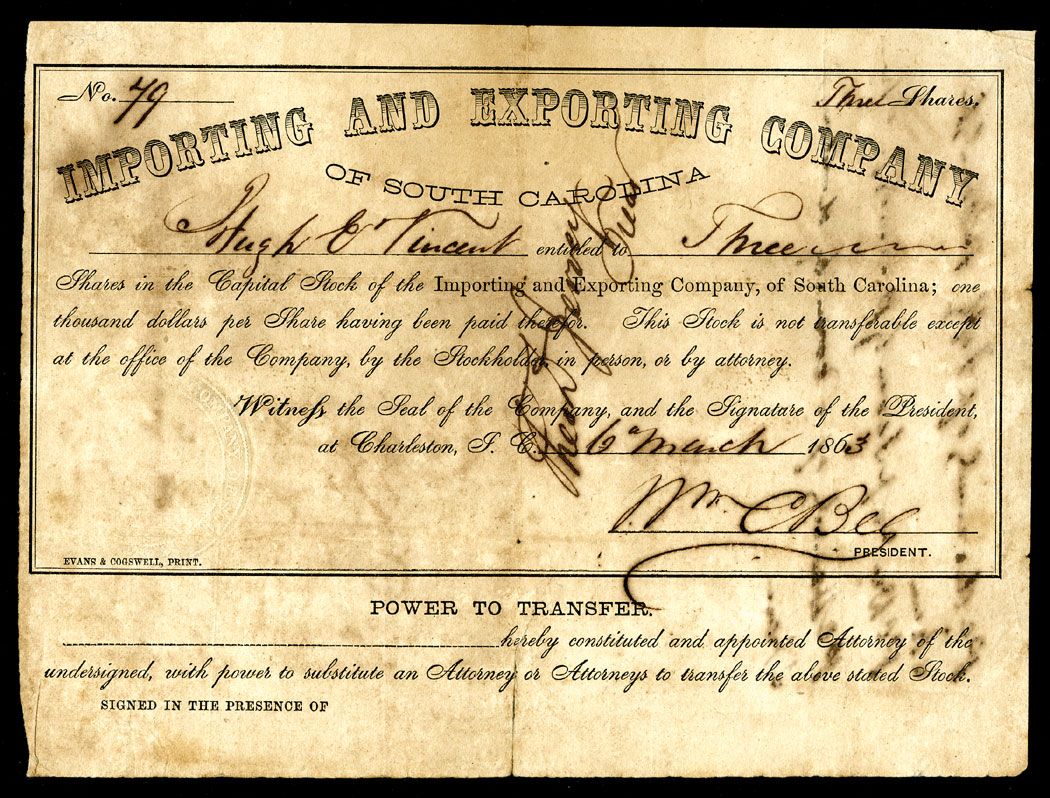 No. 79
Three Shares.
IMPORTING AND EXPORTING COMPANY
OF SOUTH CAROLINA
Hugh E Vincent entitled to Three
Shares in the Capital Stock of the Importing and Exporting Company, of South Carolina; one
thousand dollars per Share having been paid therefor. This Stock is not transferable except
at the office of the Company, by the Stockholder, in person, or by attorney.
Witness the Seal of the Company, and the Signature of the President,
at Charleston, S. C. 6 March 1863
Wm C Bee
PRESIDENT.
EVANS & COGSWELL, PRINT.
POWER TO TRANSFER.
hereby constituted and appointed Attorney of the
undersigned, with power to substitute an Attorney or Attorneys to transfer the above stated Stock.
SIGNED IN THE PRESENCE OF